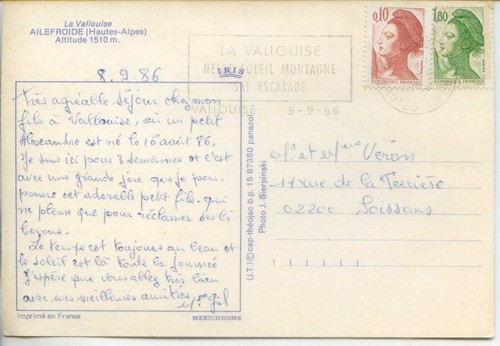 La Vallouise
AILEFROIDE (Hautes-Alpes)
Altitude 1510 m.
8.9.86
IRIS
LA VALLOUISE
NEIGE SOLEIL MONTAGNE
SKI ESCALADE
VALLOUISE 9-9-86
0,10
1,80
Très agréable séjour chez mon
fils à Vallouise, où un petit
Alexandre est né le 16 août 86.
Je suis ici pour 3 semaines et c'est
avec une grande joie que je pou-
ponne cet adorable petit fils. qui
ne pleure que pour réclamer ses bi
berons.
Le temps est toujours au beau et
le soleil est là toute la journée
J'espère que vous allez très bien
avec mes meilleures amitiés
gil
Mr et Mme Véron
17 rue de la Terrière
02200 Soissons
(J.T.) ©cap-théojac b.p. 15 87350 panazol
Photo J. Sierpinski
Imprimé en France
MEXICHROME